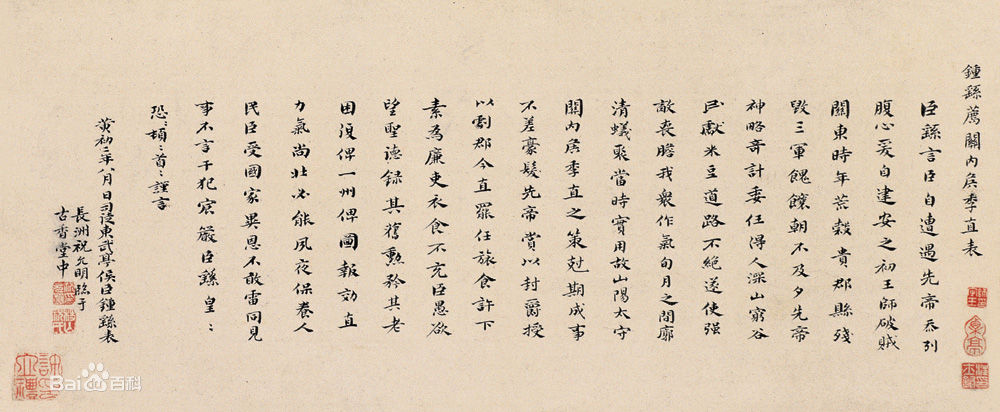 鍾繇薦關內侯季直表
臣繇言臣自遭遇先帝忝列
腹心爰自建安之初王師破賊
關東時年荒穀貴郡縣殘
毀三軍餽饟朝不及夕先帝
神略奇計委任得人深山窮谷
民獻米豆道路不絕遂使强
敵喪膽我衆作氣旬月之間廓
清蟻聚當時實用故山陽太守
關內侯季直之策尅期成事
不差豪髮先帝賞以封爵授
以劇郡今直罷任旅食許下
素為廉吏衣食不充臣愚欲
望聖德錄其舊勳矜其老
困復俾一州俾圖報効直
力氣尚壯必能夙夜保養人
民臣受國家異恩不敢雷同見
事不言干犯宸嚴臣繇皇々
恐々頓々首々謹言
黃初二年八月日司徒東武亭侯臣鍾繇表
長洲祝允明臨于
古香堂中
Bai百科